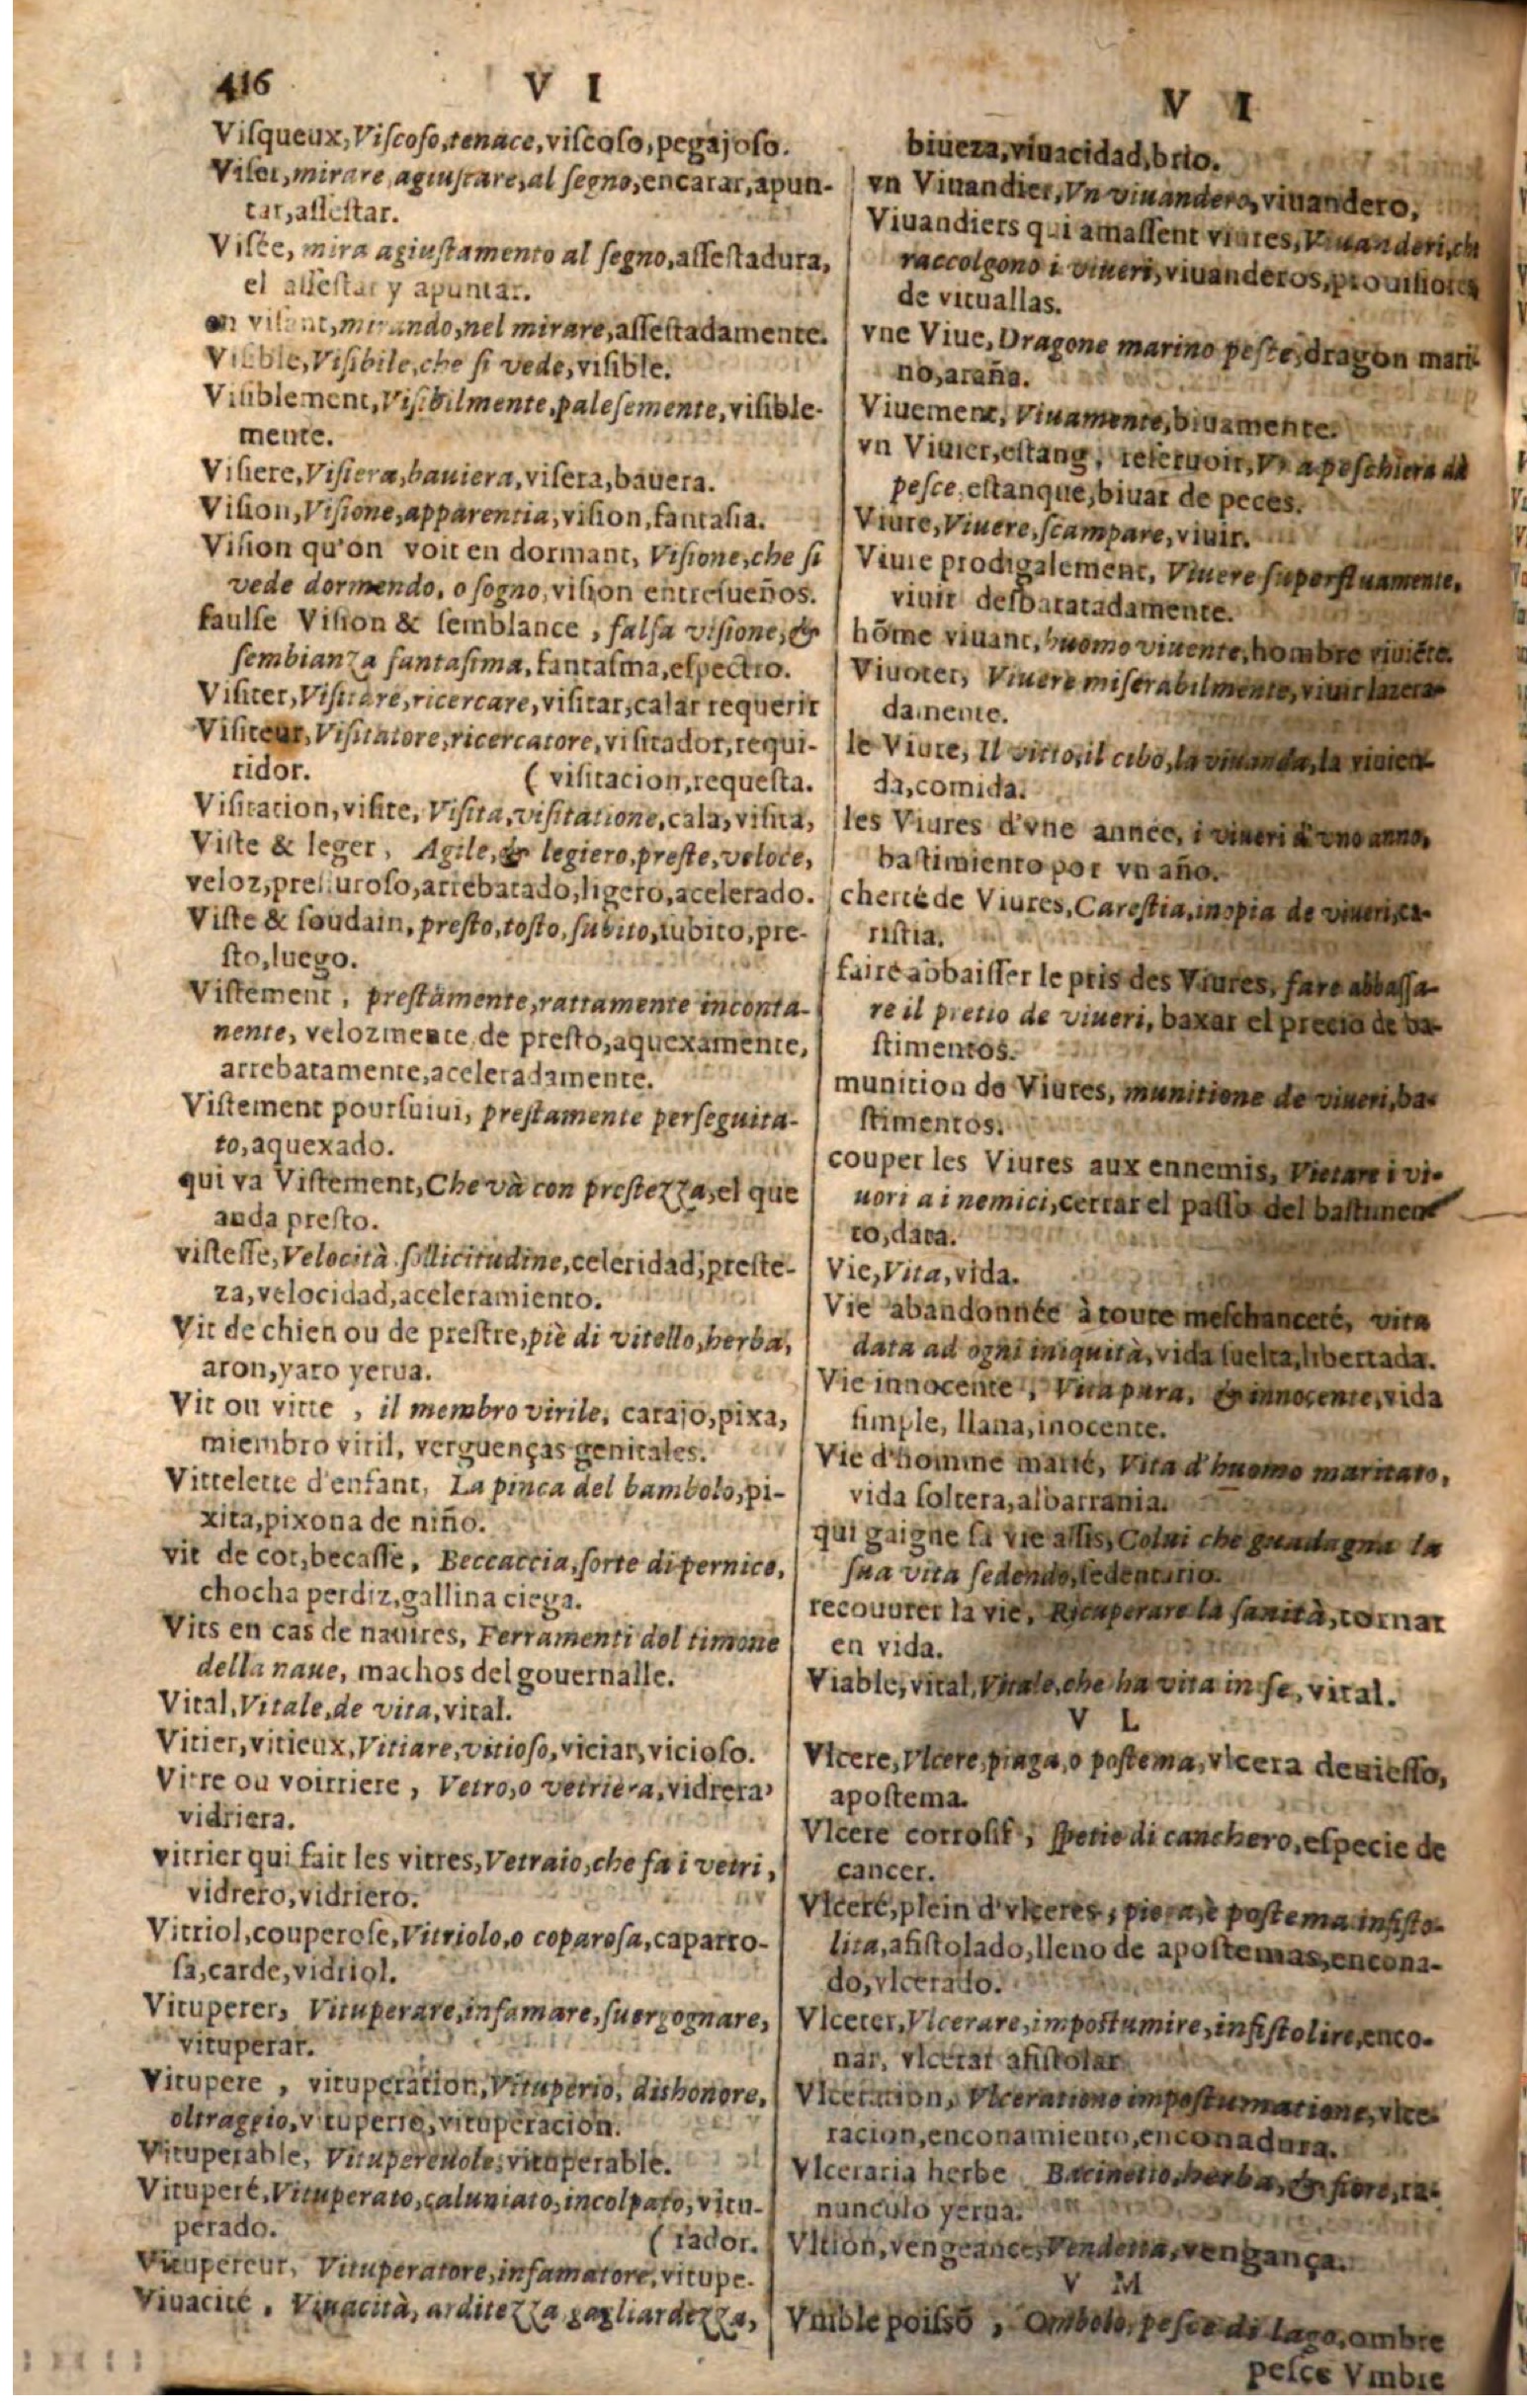 416 V I
Viſqueux, Viſcoſo, tenace, viſcoſo, pegajoſo.
Viſer, mirare, agiuſtare, al ſegno, encarar, apun-
tar, aſſeſtar.
Viſée, mira agiuſtamento al ſegno, aſſeſtadura,
el aſſeſtar y apuntar.
en viſant, mirando, nel mirare, aſſeſtadamente.
Viſible, Viſibile, che ſi vede, viſible.
Viſiblement, Viſibilmente, paleſemente, viſible-
mente.
Viſiere, Viſiera, bauiera, viſera, bauera.
Viſion, Viſione, apparentia, viſion, fantaſia.
Viſion qu'on voit en dormant, Viſione, che ſi
vede dormendo, o ſogno, viſion entreſueños.
faulſe Viſion & ſemblance, falſa viſione, &
ſembianza fantaſima, fantaſma, eſpectro.
Viſiter, Viſitare, ricercare, viſitar, calar requerir
Viſiteur, Viſitatore, ricercatore, viſitador, requi-
ridor. ( viſitacion, requeſta.
Viſitation, viſite, Viſita, viſitatione, cala, viſita,
Viſte & leger, Agile, & legiero, preſte, veloce,
veloz, preſſuroſo, arrebatado, ligero, acelerado.
Viſte & ſoudain, preſto, toſto, ſubito, ſubito, pre-
ſto, luego.
Viſtement, preſtamente, rattamente inconta-
nente, velozmente de preſto, aquexamente,
arrebatamente, aceleradamente.
Viſtement pourſuiui, preſtamente perſeguita-
to, aquexado.
qui va Viſtement, Che và con preſtezza, el que
anda preſto.
viſteſſe, Velocità ſollicitudine, celeridad, preſte-
za, velocidad, aceleramiento.
Vit de chien ou de preſtre, piè di vitello, herba,
aron, yaro yerua.
Vit ou vitte, il membro virile, carajo, pixa,
miembro viril, verguenças genitales.
Vittelette d'enfant, La pinca del bambolo, pi-
xita, pixona de niño.
vit de coc, becaſſe, Beccaccia, ſorte di pernice,
chocha perdiz, gallina ciega.
Vits en cas de nauires, Ferramenti del timone
della naue, machos del gouernalle.
Vital, Vitale, de vita, vital.
Vitier, vitieux, Vitiare, vitioſo, viciar, vicioſo.
Vitre ou voirriere, Vetro, o vetriera, vidrera,
vidriera.
vitrier qui fait les vitres, Vetraio, che fa i vetri,
vidrero, vidriero.
Vitriol, couperoſe, Vitriolo, o coparoſa, caparro-
ſa, carde, vidriol.
Vituperer, Vituperare, infamare, ſuergognare,
vituperar.
Vitupere, vituperation, Vituperio, dishonore,
oltraggio, vituperio, vituperacion.
Vituperable, Vitupereuole, vituperable.
Vituperé, Vituperato, caluniato, incolpato, vitu-
perado. ( rador.
Vitupereur, Vituperatore, infamatore, vitupe-
Viuacité, Viuacità, arditezza gagliardezza,
V I
biueza, viuacidad, brio.
vn Viuandier, Vn viuandero, viuandero,
Viuandiers qui amaſſent viures, Viuanderi, ch
raccolgono i viueri, viuanderos, prouiſiores
de vituallas.
vne Viue, Dragone marino peſce, dragon mari-
no, araña.
Viuement, Viuamente, biuamente.
vn Viuier, eſtang, reſeruoir, Vna peſchiera dà
peſce, eſtanque, biuar de peces.
Viure, Viuere, ſcampare, viuir.
Viure prodigalement, Viuere ſuperfluamente,
viuir desbaratadamente.
hõme viuant, huomo viuente, hombre viuiẽte.
Viuoter, Viuere miſerabilmente, viuir lazera-
damente.
le Viure, Il vitto, il cibo, la viuanda, la viuien-
da, comida.
les Viures d'vne année, i viueri d'vno anno,
baſtimiento por vn año.
cherté de Viures, Careſtia, inopia de viueri, ca-
riſtia.
faire abbaiſſer le pris des Viures, fare abbaſſa-
re il pretio de viueri, baxar el precio de ba-
ſtimentos.
munition de Viures, munitione de viueri, ba-
ſtimentos.
couper les Viures aux ennemis, Vietare i vi-
uori a i nemici, cerrar el paſſo del baſtimen-
to, data.
Vie, Vita, vida.
Vie abandonnée à toute meſchanceté, vita
data ad ogni iniquità, vida ſuelta, libertada.
Vie innocente, Vita pura, & innocente, vida
ſimple, llana, inocente.
Vie d'homme marié, Vita d'huomo maritato,
vida ſoltera, albarrania.
qui gaigne ſa vie aſſis, Colui che guadagna la
ſua vita ſedendo, ſedentario.
recouurer la vie, Ricuperare la ſanità, tornar
en vida.
Viable, vital, Vitale, che ha vita in ſe, vital.
V L
Vlcere, Vlcere, piaga, o poſtema, vlcera deuieſſo,
apoſtema.
Vlcere corroſif, ſpetie di canchero, eſpecie de
cancer.
Vlceré, plein d'vlceres, è poſtema infiſto-
lita, afiſtolado, lleno de apoſtemas, encona-
do, vlcerado.
Vlcerer, Vlcerare, impoſtumire, infiſtolire, enco-
nar, vlcerar afiſtolar
Vlceration, Vlceratione impoſtumatione, vlce-
racion, enconamiento, enconadura.
Vlceraria herbe Bacinetto, herba, & fiore, ra-
nunculo yerua.
Vltion, vengeance, Vendetta, vengança.
V M
Vmble poiſſõ, Ombolo, peſce di Lago, ombre
peſce Vmbre